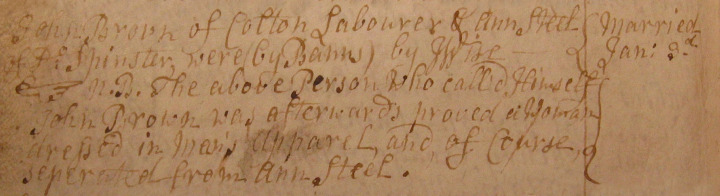 John Brown of Colton Labourer & Ann Steel Married
of Do. Spinster, were (by Banns) by Jan: 3d
N.B. The above Person who call'd Himself
John Brown was afterwards proved a Woman
dressed in Man's Apparel, and, of Course,
seperated from Ann Steel.